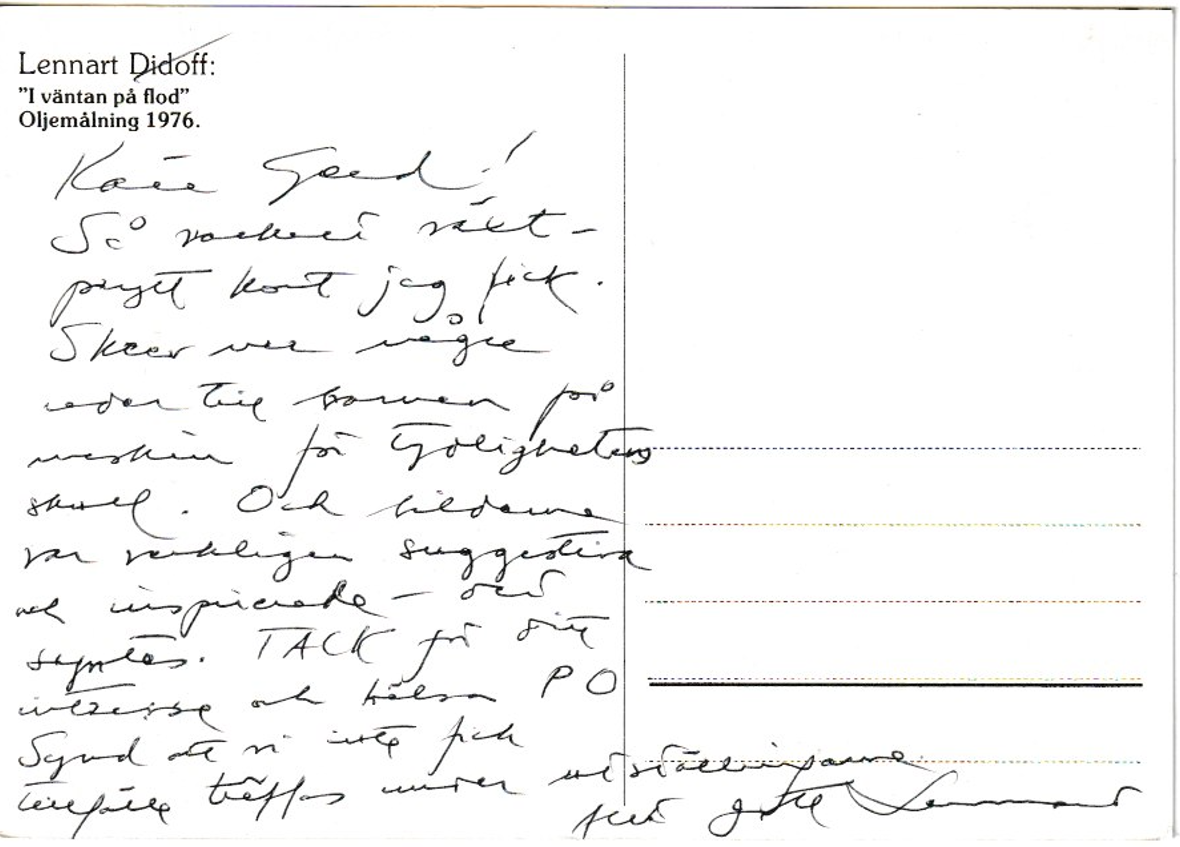 Lennart Didoff:
"I väntan på flod"
Oljemålning 1976.
Kära Gerd!
Så vackert växt-
prytt kort jag fick.
Skrev ner några
rader till barnen på
maskin för tydlighetens
skull. Och bilderna
var verkligen suggestiva
och inspirerade –
syntes. TACK för ditt
intresse och hälsa PO
Synd att vi inte fick
tillfälle träffas under utställningarna.
gott Lennart